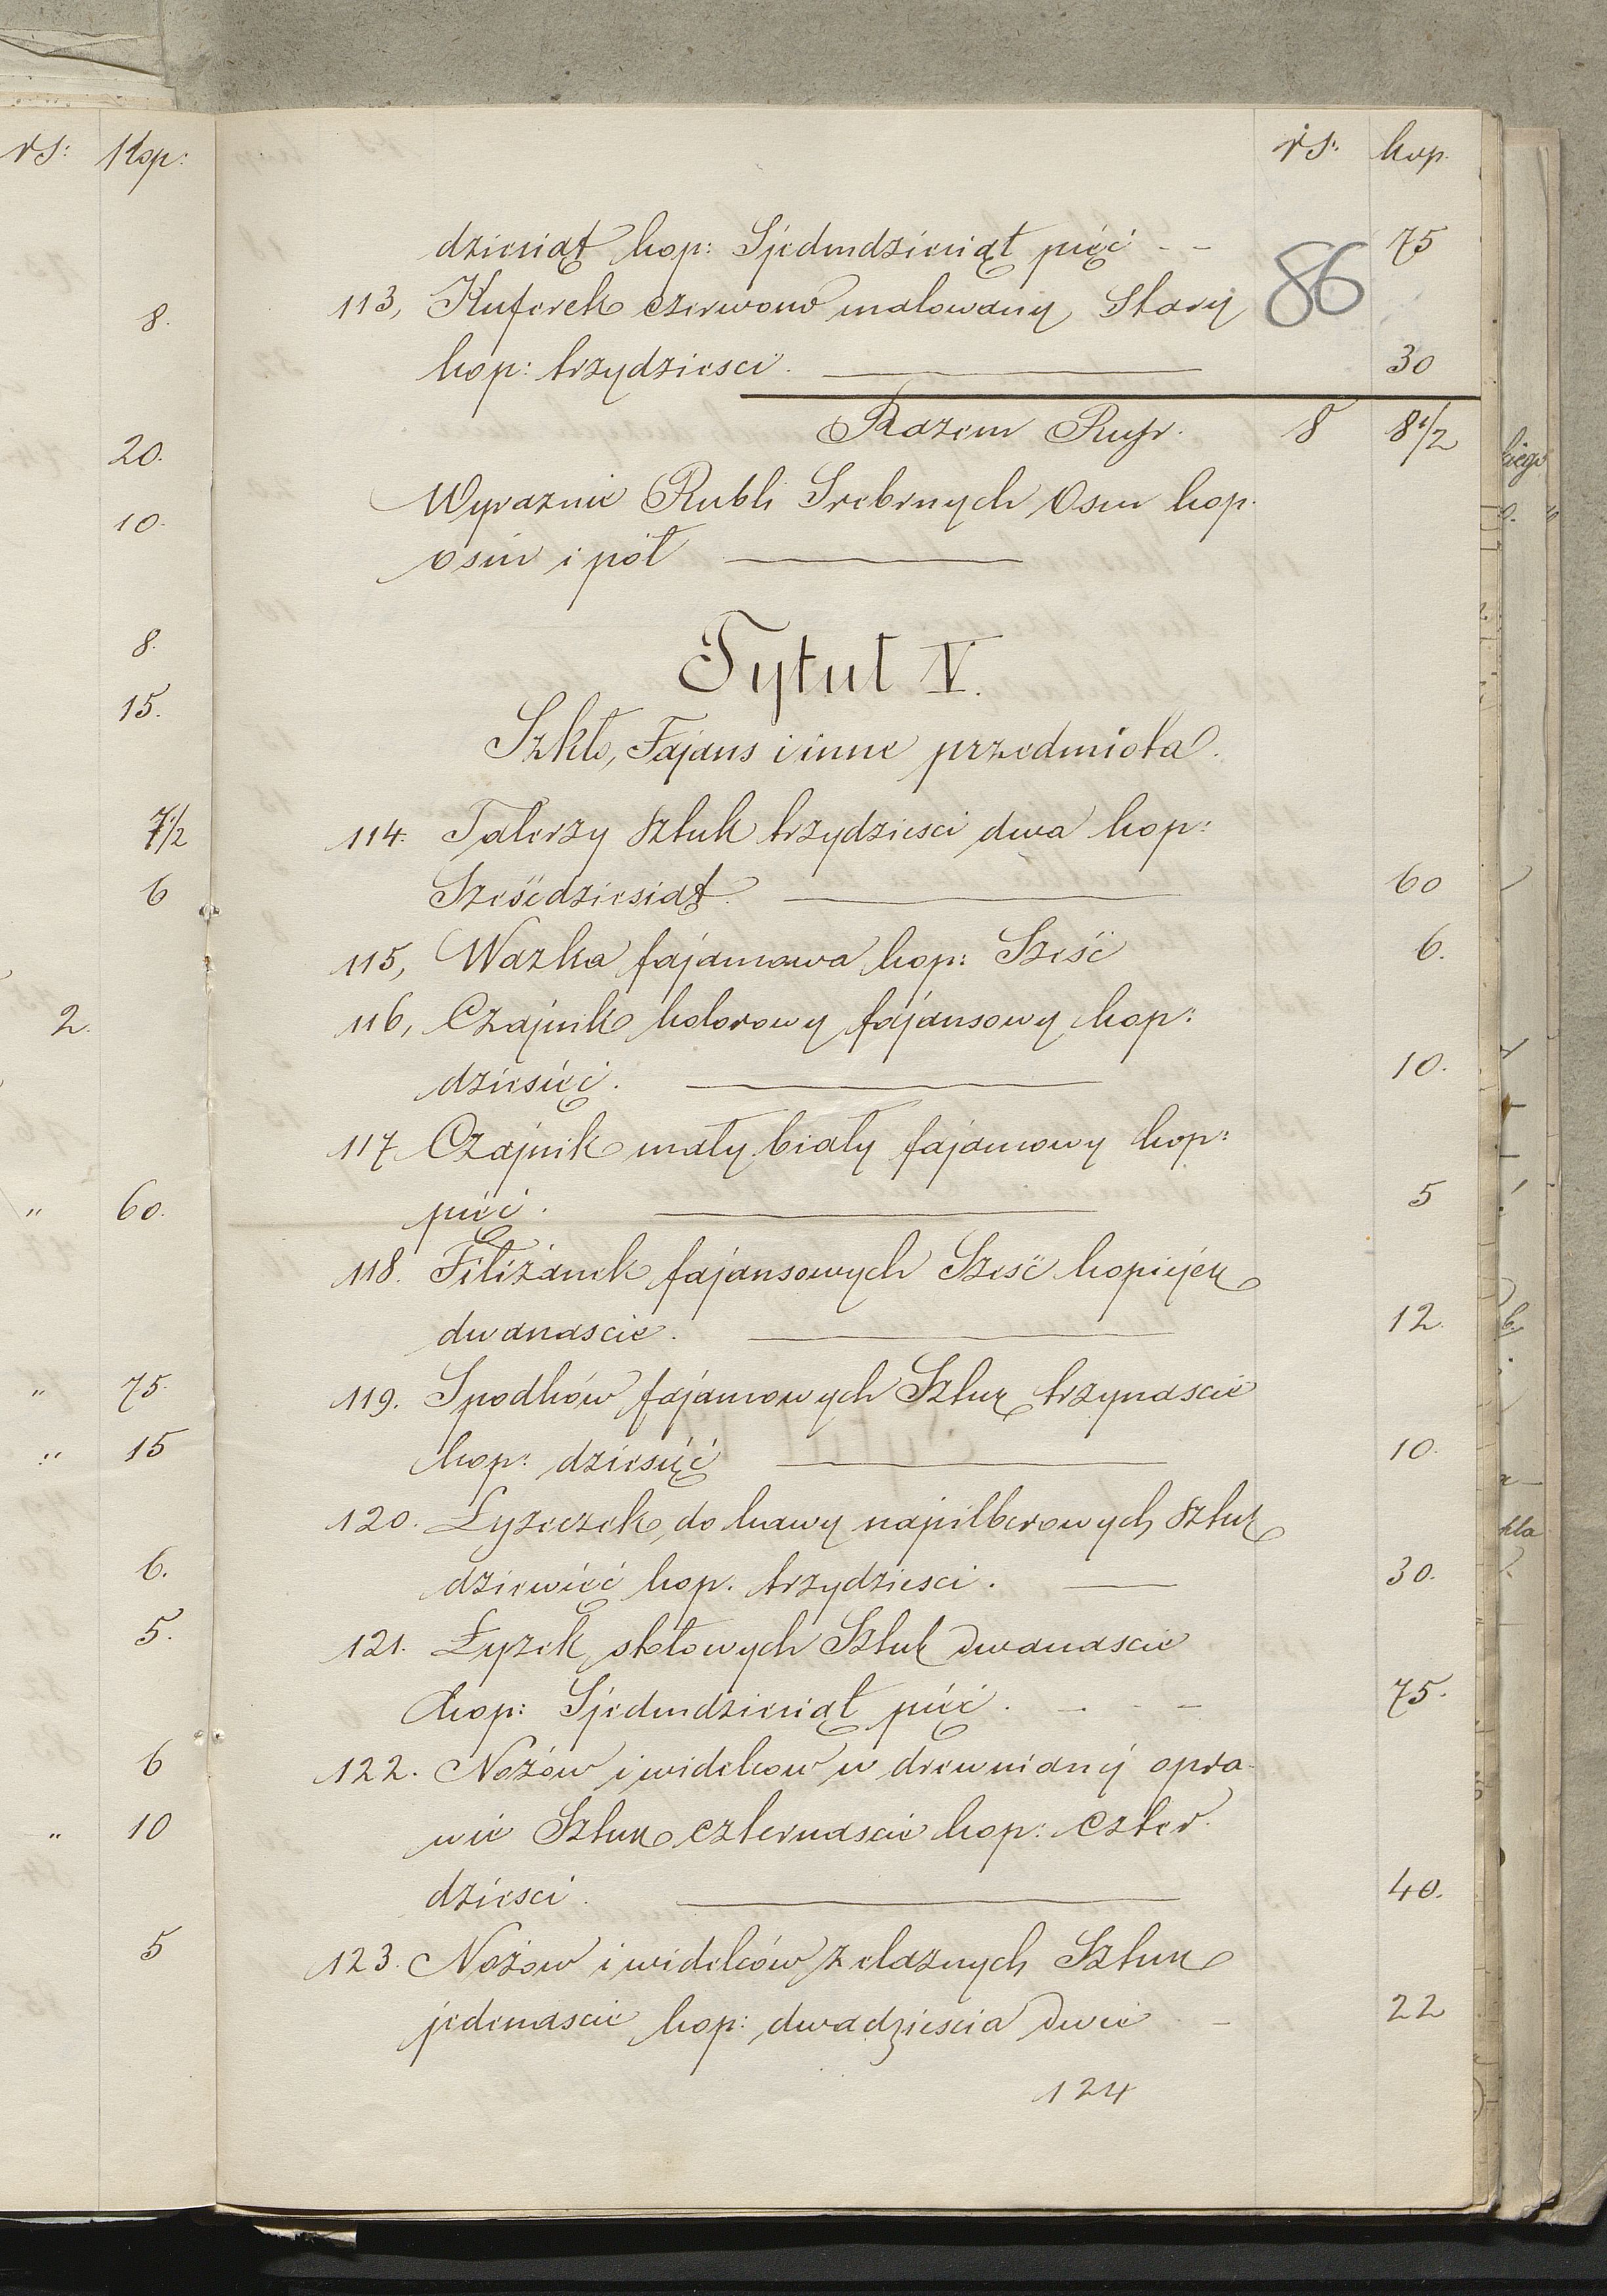 rs: Kop:
8.
20.
10.
8.
15.
7 1/2
6
2.
" 60.
" 75.
" 15
6.
5.
6
" 10
5
rs: kop.
dziesiąt kop: Sjedmdziesiąt pięć - - 75
86
113, Kuferek czerwono malowany Stary
kop: trzydziesci. 30
Razem Rugr. 8 8 1/2
Wyraznie Rubli Srebrnych Osm kop.
osm i pół
Tytuł V.
Szkło, Fajans i inne przedmiota.
114. Talerzy sztuk trzydziesci dwa kop:
Sześćdziesiąt. 60
115, Wazka fajansowa kop: Sześć 6.
116, Czajnik kolorowy fajansowy kop:
dziesięć. 10.
117 Czajnik mały biały fajansowy kop:
pięć. 5
118. Filiżanek fajansowych Sześć kopiejek
dwanascie. 12.
119. Spodków fajansowych Sztuk trzynascie
kop: dziesięć 10.
120. Łyżeczek do kawy najzilberowych sztuk
dziewięć kop. trzydziesci. 30.
121. Łyżek stołowych Sztuk dwanascie
kop: Sjedmdziesiąt pięć. - - - 75.
122. Nożów i widelcow w drewnianý opra-
wie Sztuk czternascie kop: czter-
dziesci. 40.
123. Nożow i widelców żelaznych Sztuk
jedenascie kop: dwadziescia dwie - 22
124